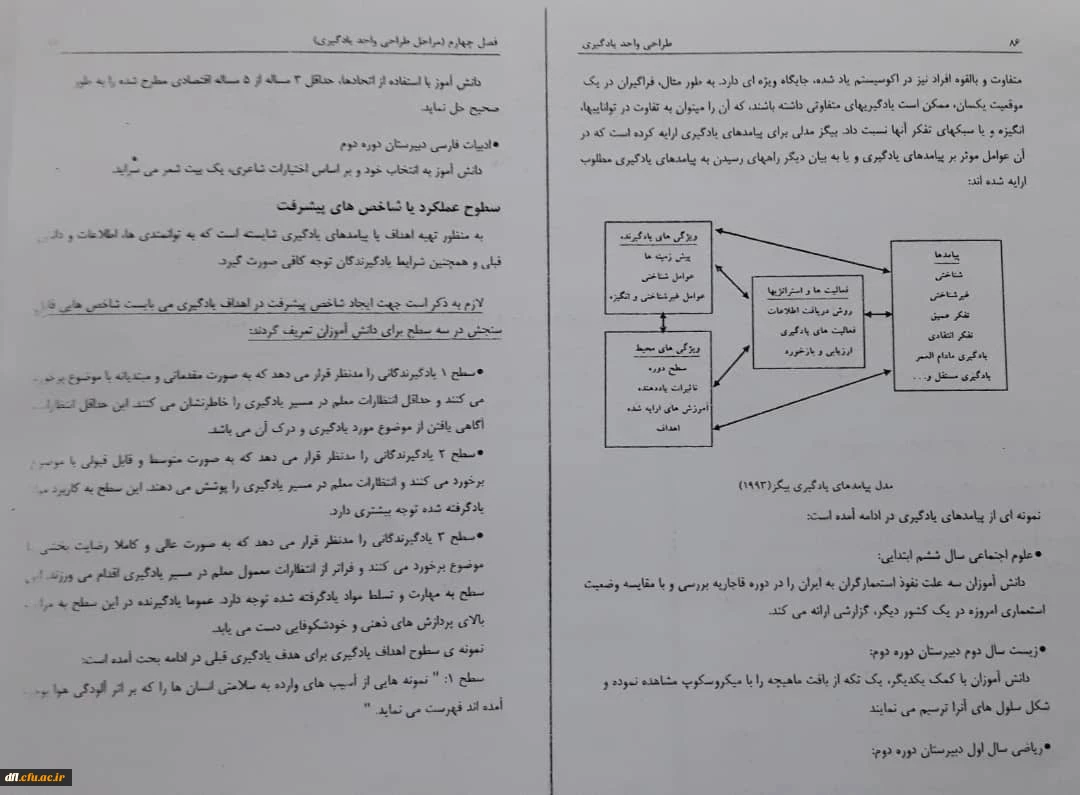 ۸۶
طراحی واحد یادگیری
متفاوت و بالقوه افراد نیز در اکوسیستم یاد شده، جایگاه ویژه ای دارد. به طور مثال، فراگیران در یک
موقعیت یکسان، ممکن است یادگیریهای متفاوتی داشته باشند، که آن را میتوان به تفاوت در تواناییها،
انگیزه و یا سبکهای تفکر آنها نسبت داد. بیگز مدلی برای پیامدهای یادگیری ارایه کرده است که در
آن عوامل موثر بر پیامدهای یادگیری و یا به بیان دیگر راههای رسیدن به پیامدهای یادگیری مطلوب
ارایه شده اند:
پیامدها
شناختی
غیرشناختی
تفکر عمیق
تفکر انتقادی
یادگیری مادام العمر
یادگیری مستقل و...
فعالیت ها و استراتژیها
روش دریافت اطلاعات
فعالیت های یادگیری
ارزیابی و بازخورد
ویژگی های یادگیرنده
پیش زمینه ها
عوامل شناختی
عوامل غیرشناختی و انگیزه
ویژگی های محیط
سطح دوره
تاثیرات یاددهنده
آموزش های ارایه شده
اهداف
مدل پیامدهای یادگیری بیگز(۱۹۹۳)
نمونه ای از پیامدهای یادگیری در ادامه آمده است:
●علوم اجتماعی سال ششم ابتدایی:
دانش آموزان سه علت نفوذ استعمارگران به ایران را در دوره قاجاریه بررسی و با مقایسه وضعیت
استعماری امروزه در یک کشور دیگر، گزارشی ارائه می کند.
●زیست سال دوم دبیرستان دوره دوم:
دانش آموزان با کمک یکدیگر، یک تکه از بافت ماهیچه را با میکروسکوپ مشاهده نموده و
شکل سلول های آنرا ترسیم می نمایند
●ریاضی سال اول دبیرستان دوره دوم:
فصل چهارم (مراحل طراحی واحد یادگیری)
دانش آموز با استفاده از اتحادها، حداقل ۳ مساله از ۵ مساله اقتصادی مطرح شده را به طور
صحیح حل نماید.
●ادبیات فارسی دبیرستان دوره دوم
دانش آموز به انتخاب خود و بر اساس اختیارات شاعری، یک بیت شعر می سراید.
سطوح عملکرد یا شاخص های پیشرفت
به منظور تهیه اهداف یا پیامدهای یادگیری شایسته است که به توانمندی ها، اطلاعات و
قبلی و همچنین شرایط یادگیرندگان توجه کافی صورت گیرد.
لازم به ذکر است جهت ایجاد شاخص پیشرفت در اهداف یادگیری می بایست شاخص هایی قابل
سنجش در سه سطح برای دانش آموزان تعریف گردند:
●سطح ۱ یادگیرندگانی را مدنظر قرار می دهد که به صورت مقدماتی و مبتدیانه با موضوع برخورد
می کنند و حداقل انتظارات معلم در مسیر یادگیری را خاطرنشان می کنند. این حداقل انتظارات
آگاهی یافتن از موضوع مورد یادگیری و درک آن می باشد.
●سطح ۲ یادگیرندگانی را مدنظر قرار می دهد که به صورت متوسط و قابل قبولی با موضوع
برخورد می کنند و انتظارات معلم در مسیر یادگیری را پوشش می دهند. این سطح به کاربرد
یادگرفته شده توجه بیشتری دارد.
●سطح ۳ یادگیرندگانی را مدنظر قرار می دهد که به صورت عالی و کاملا رضایت بخشی
موضوع برخورد می کنند و فراتر از انتظارات معمول معلم در مسیر یادگیری اقدام می ورزند. این
سطح به مهارت و تسلط مواد یادگرفته شده توجه دارد. عموما یادگیرنده در این سطح به
بالای پردازش های ذهنی و خودشکوفایی دست می یابد.
نمونه ی سطوح اهداف یادگیری برای هدف یادگیری قبلی در ادامه بحث آمده است:
سطح ۱: " نمونه هایی از آسیب های وارده به سلامتی انسان ها را که بر اثر آلودگی هوا بوجود
آمده اند فهرست می نماید. "
dfl.cfu.ac.ir